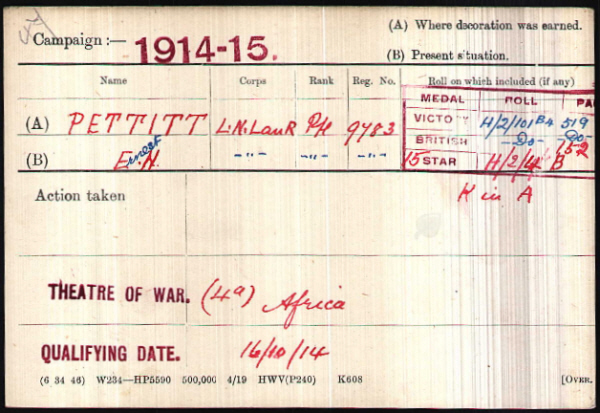 (A) Where decoration was earned.
Campaign:— 1914-15.
(B) Present situation.
Name Corps Rank Reg. No. Roll on which included (if any)
MEDAL ROLL PA
(A) PETTITT L.N.LanR Pte 9783 VICTORY H/2/101B4 519
(B) Ernest H. —"— —"— —"— BRITISH —Do— —Do—
15 STAR H/2/4 B 152
Action taken K in A
THEATRE OF WAR. (4a) Africa
QUALIFYING DATE. 16/10/14
(6 34 46) W234—HP5590 500,000 4/19 HWV(P240) K608 [OVER.